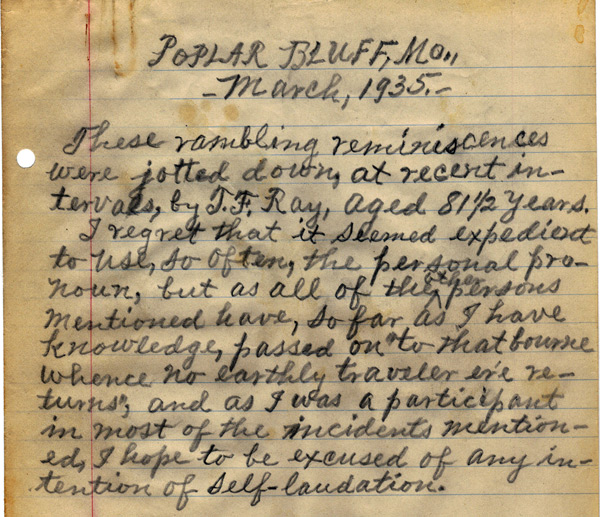 POPLAR BLUFF, Mo.,
- March, 1935. -
These rambling reminiscences
were jotted down, at recent in-
tervals, by T.F. Ray, aged 81 1/2 years.
I regret that it seemed expedient
to use, so often, the personal pro-
noun, but as all of the other persons
mentioned have, so far as I have
knowledge, passed on "to that bourne
whence no earthly traveler e'er re-
turns", and as I was a participant
in most of the incidents mention-
ed, I hope to be excused of any in-
tention of self-laudation.